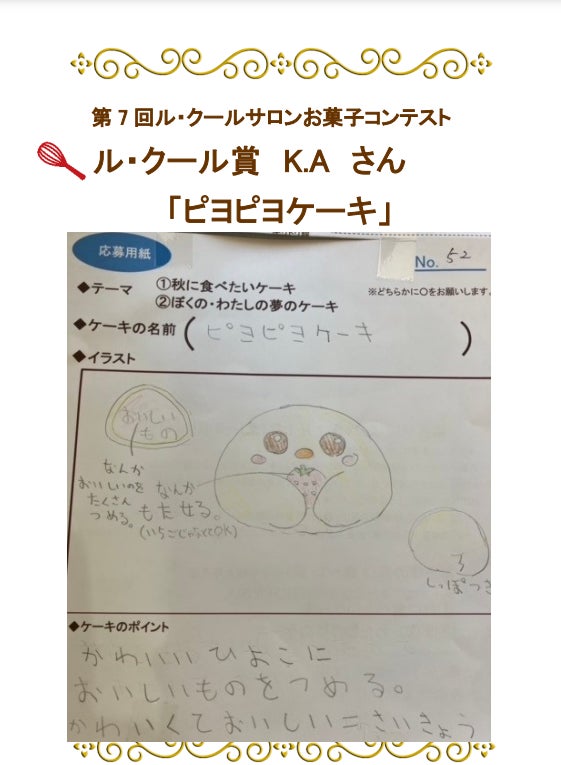 第7回ル・クールサロンお菓子コンテスト
ル・クール賞 K.A さん
「ピヨピヨケーキ」
応募用紙
No. 52
◆テーマ ①秋に食べたいケーキ
②ぼくの・わたしの夢のケーキ
※どちらかに〇をお願いします。
◆ケーキの名前 (ピヨピヨケーキ)
◆イラスト
おいしい
もの
なんか
おいしいのを
たくさん
つめる。
なんか
もたせる。
(いちごじゃなくてOK)
しっぽつき
◆ケーキのポイント
かわいいひよこに
おいしいものをつめる。
かわいくておいしい=さいきょう